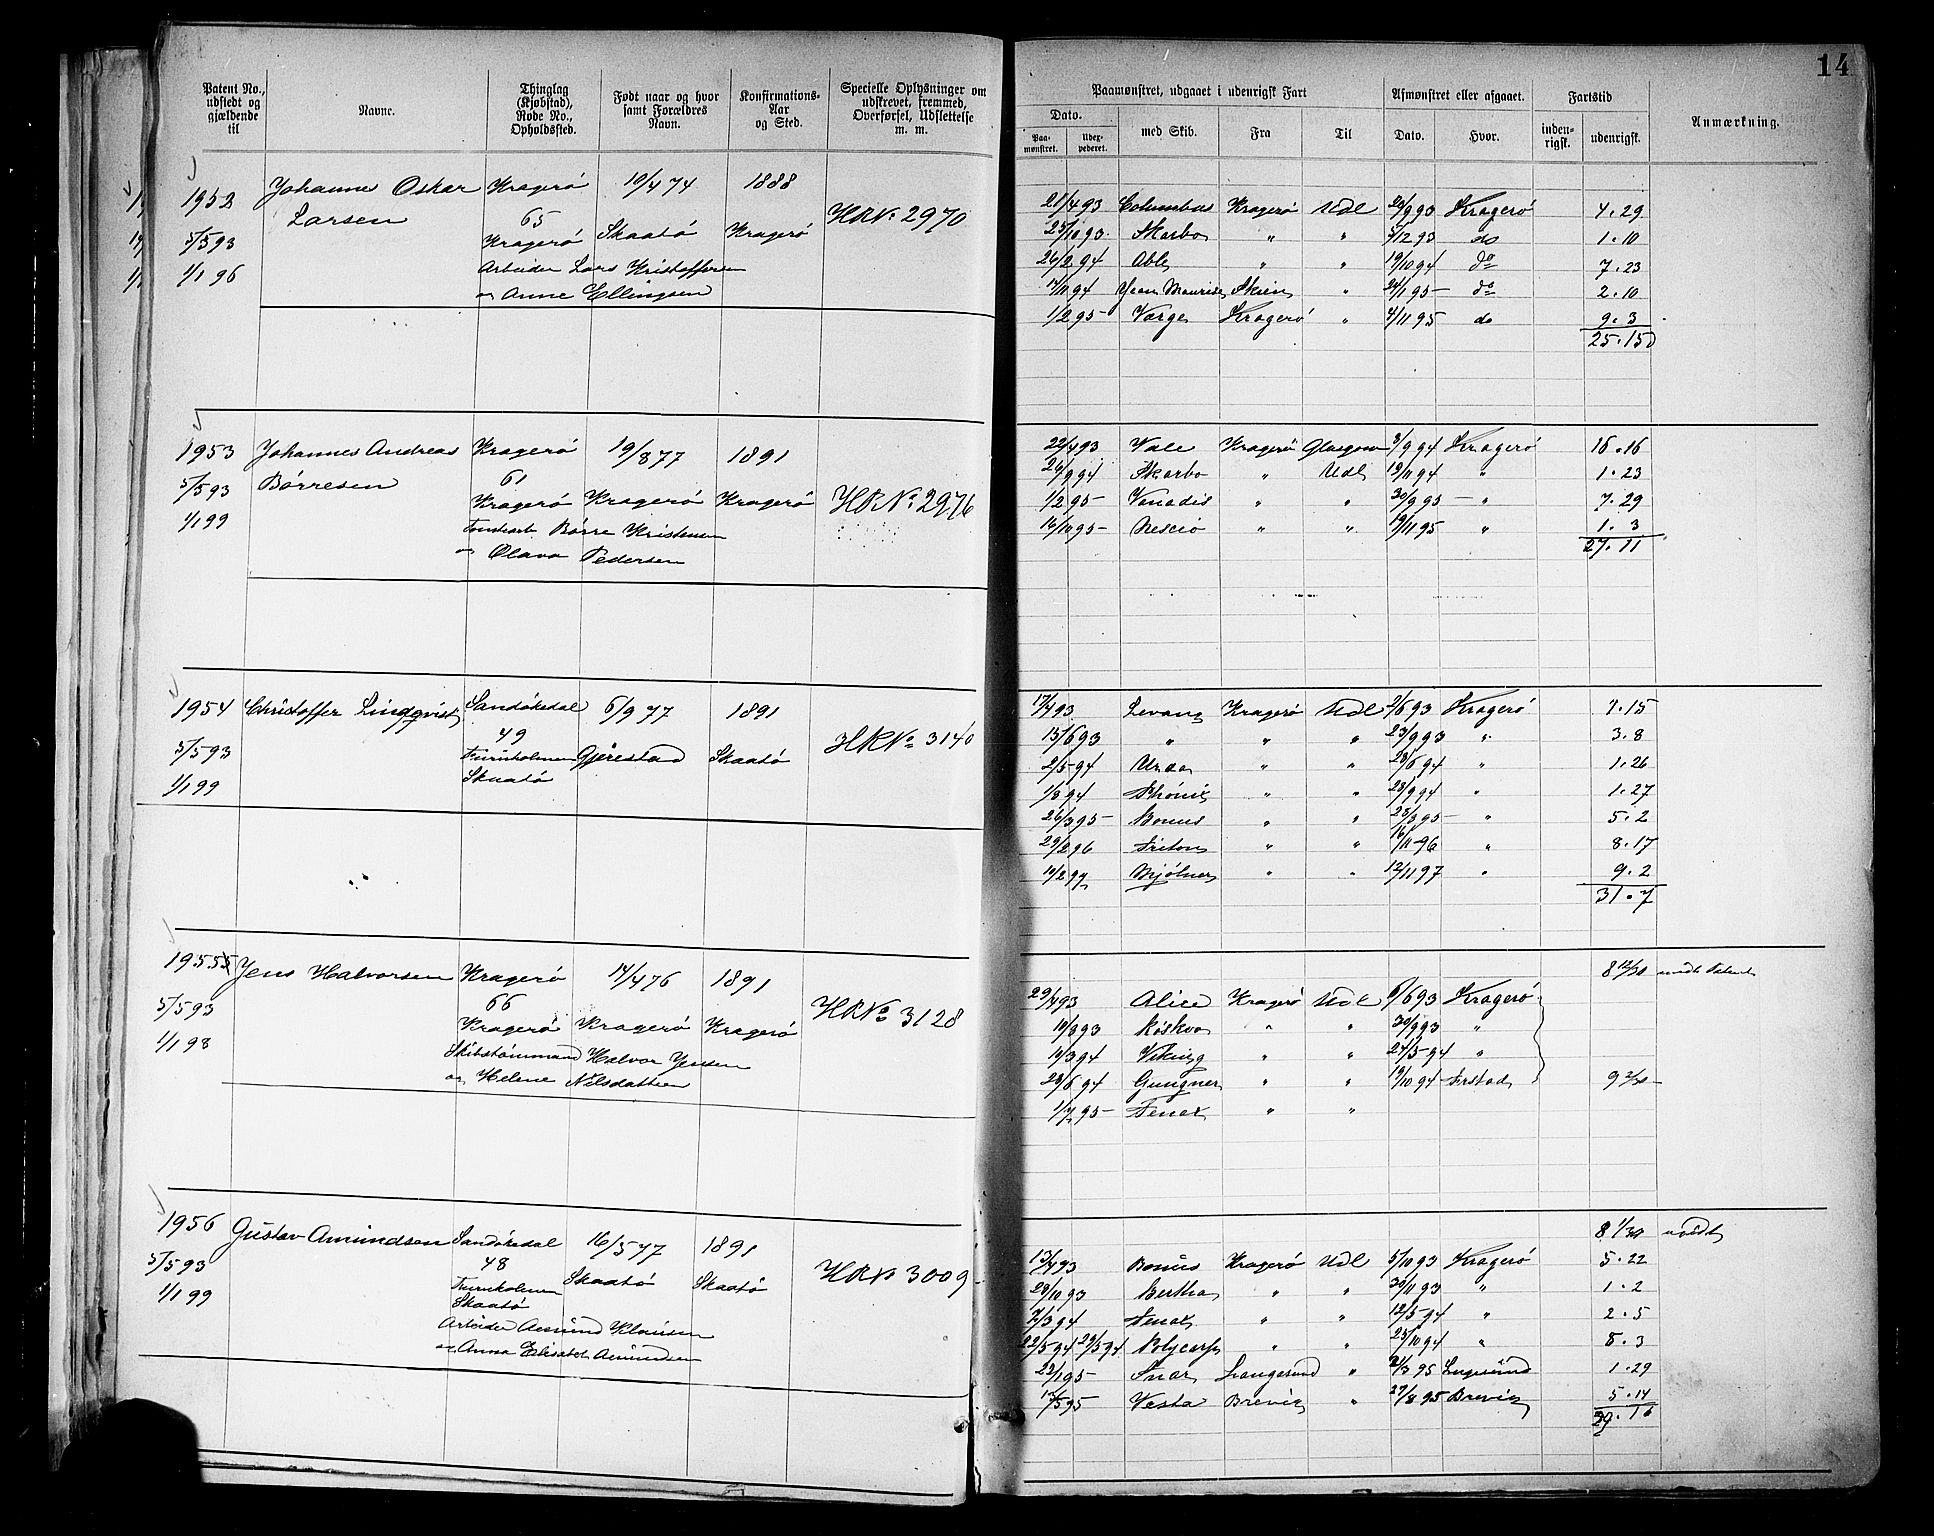 14
Patent No., udstedt og gjældende til
Navne.
Thinglag (Kjøbstad), Rode No., Opholdssted.
Født naar og hvor samt Forældres Navn.
Konfirmations- Aar og Sted.
Specielle Oplysninger om udskrevet, fremmed, Overførsel, Udslettelse m. m.
Paamønstret, udgaaet i udenrigsk Fart
Afmønstret eller afgaaet.
Fartstid
Anmærkning.
Dato.
Paa- mønstret.
Udex- pederet.
med Skib.
Fra
Til
Dato.
Hvor.
inden- rigsk.
udenrigsk.
1952 Johannes Oskar Kragerø 10/4 74 1888
Larsen 65 HRN: 2970
5/5 93 Kragerø Skaatø Kragerø
1/1 96 Arbeider Lars Kristoffersen
og Anne Ellingsen
21/4 93 Columbus Kragerø Udl 28/9 93 Kragerø 4.29
25/10 93 Skarbo " " 5/12 93 do 1.10
26/2 94 Able " " 19/10 94 do 7.23
14/11 94 Skien " 24/1 95 do 2.10
1/2 95 Varge Kragerø " 4/11 95 do 9.3
25.15
1953 Johannes Andreas Kragerø 19/8 77 1891
Børresen 61
5/5 93 Kragerø Kragerø Kragerø HRN: 2976
1/1 99 Børre Kristensen
og Olava Pedersen
22/4 93 Vale Kragerø Glasgow 8/9 94 Kragerø 16.16
26/9 94 Skarbo " Udl 19/11 94 " 1.23
1/2 95 Vanadis " " 30/9 95 " 7.29
16/10 95 Nescio " " 19/11 95 " 1.3
27.11
1954 Christoffer Lindqvist Sandøkedal 6/9 77 1891
49 HRN: 3140
5/5 93 Furuholmen Gjerestad Skaatø
1/1 99 Skaatø
17/4 93 Levang Kragerø Udl 2/6 93 Kragerø 1.15
15/6 93 " " " 23/9 93 " 3.8
2/5 94 " " 28/6 94 " 1.26
1/8 94 Phønix " " 28/9 94 " 1.27
26/3 95 Bonus " " 28/8 95 " 5.2
29/2 96 Triton " " 16/11 96 " 8.17
10/2 97 Mjølner " " 12/11 97 " 9.2
31.7
1955 Jens Halvorsen Kragerø 14/4 76 1891
5/5 93 66 HRNo 3128
Kragerø Kragerø Kragerø
1/1 98 Skibstømmermand Halvor Jensen
og Helene Nilsdatter
8 12/30
29/4 93 Alice Kragerø Udl 6/6 93 Kragerø
10/8 93 Røskva " " 30/9 93 "
10/3 94 Viking " " 24/5 94 "
28/6 94 Gungner " " 19/10 94 9 2/30
1/7 95 Tenax " "
1956 Gustav Amundsen Sandøkedal 16/5 77 1891
5/5 93 48 Skaatø Skaatø HRN 3009
1/1 99 Furuholmen
Skaatø
Arbeider Amund Klausen
og Anna Elisabet Amundsen
8 1/30
13/4 93 Bonus Kragerø Udl 5/10 93 Kragerø 5.22
28/10 93 Bertha " " 30/11 93 " 1.2
7/3 94 Tenax " " 12/5 94 " 2.5
22/5 94 29/5 94 Polycarp " " 25/10 94 " 5.3
22/1 95 Snar Langesund " 21/3 95 Langesund 1.29
15/5 95 Vesta Brevig " 29/8 95 Brevig 5.14
29.16